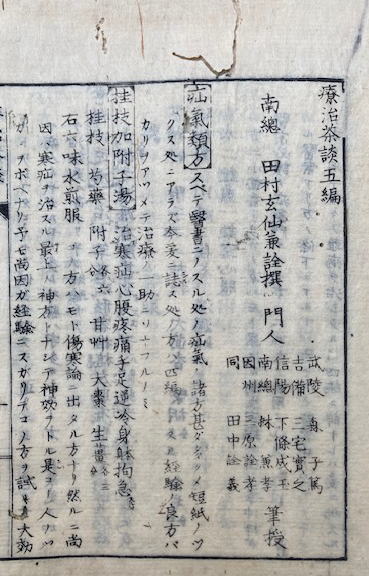 療治茶談五編
南總 田村玄仙兼詮撰 門人
武陵 子篤
吉備 三宅實之
信陽 下條成玉
南總 林薫孝
因州 三原詮孝
同 田中詮義
筆授
疝気類方 スベテ醫書ニノスル処ノ疝氣諸方甚ダ 短紙ノツ
クス処ニアラズ 処ノ方ハ四編 経驗ノ良方バ
カリヲアツメテ治療ノ一助ニソナフルノミ
桂枝加附子湯 治寒疝心腹疼痛手足逆冷身躰拘急
桂枝 芍藥 附子 甘艸 大棗 生薑
右六味水煎服 方ハモト傷寒論ニ出タル方ナリ然ルニ尚
因 寒疝ヲ治スル最上ノ神方トナシテ神效ヲトル是 人ノ
ヲボヘナリ予モ尚因ガ経驗ニスガリテコノ方ヲ試 大効